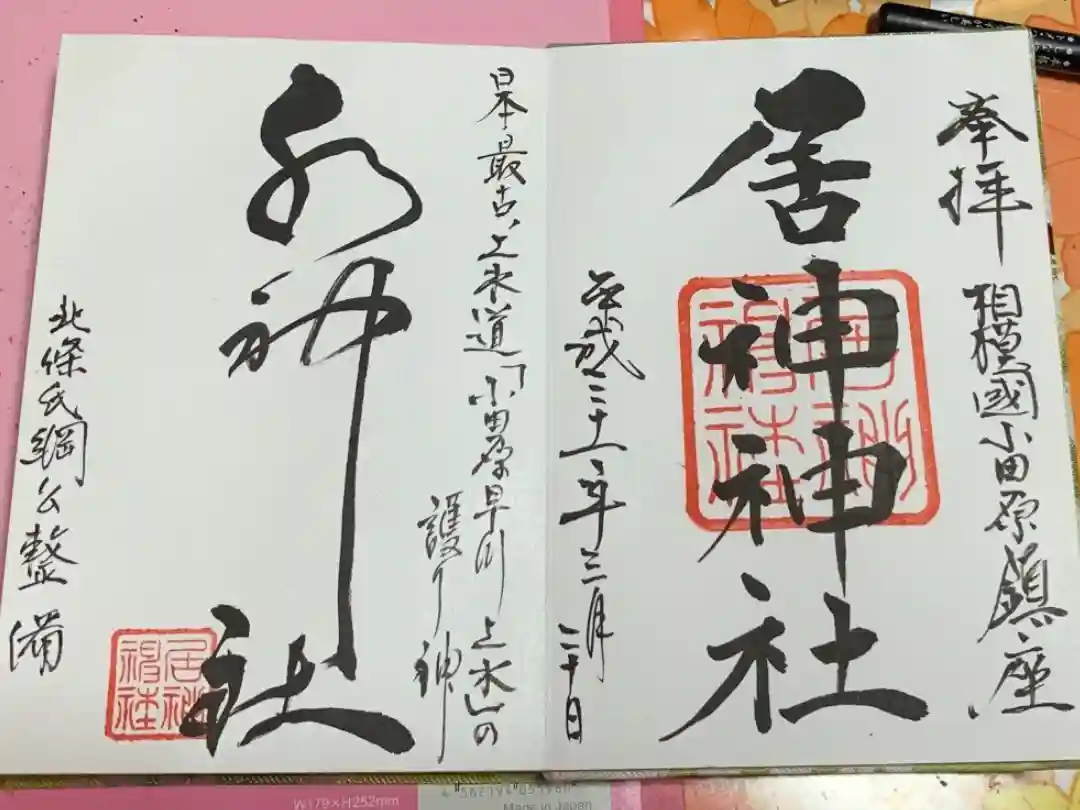 奉拝
相模國小田原鎮座
居神神社
平成三十一年三月二十日
日本最古、上水道「小田原早川上水」の
護り神
水神社
北條氏綱公整備
居神
神社
W179×H252mm
Made in Japan